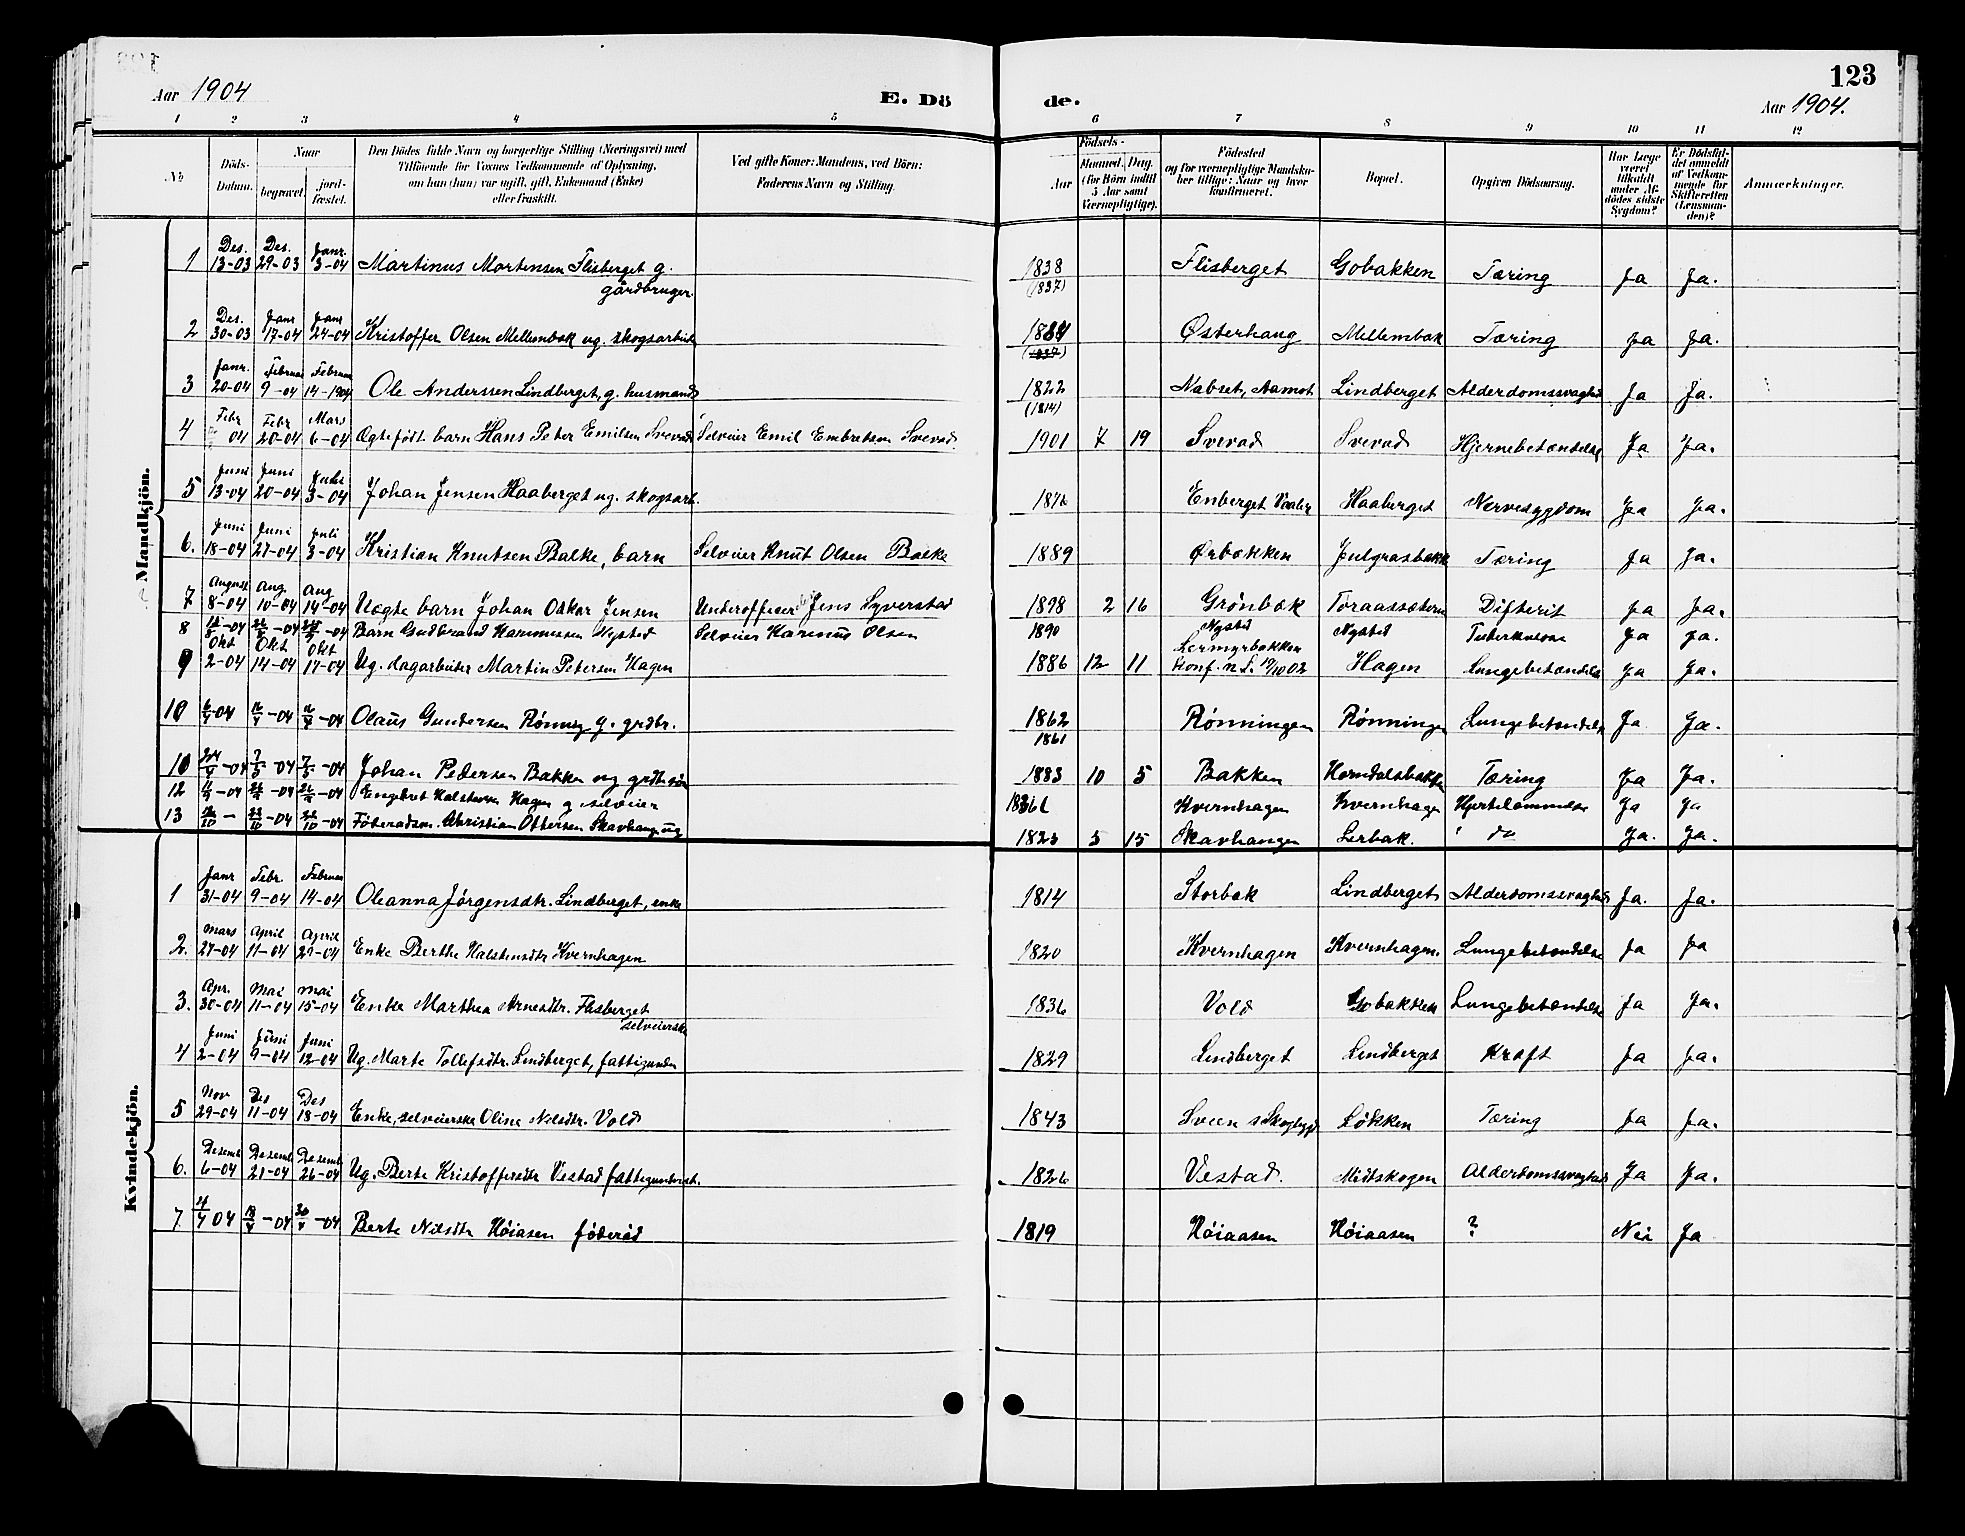 Aar 1904
E. Dö de.
123
Aar 1904.
1 2 3 4 5 6 7 8 9 10 11 12
No
Döds-Datum.
Naar
begravet.
jord-fæstet.
Den Dödes fulde Navn og borgerlige Stilling (Næringsvei) med
Tilföiende for Voxnes Vedkommende af Oplysning,
om han (hun) var ugift, gift, Enkemand (Enke)
eller fraskilt.
Ved gifte Koner: Mandens, ved Börn:
Faderens Navn og Stilling.
Födsels-
Aar
Maaned. Dag.
(for Börn indtil
5 Aar samt
Værnepligtige).
Födested
og for værnepligtige Mandsku-
ber tillige: Naar og hvor
konfirmeret.
Bopæl.
Opgiven Dödsaarsag.
Har Læge
været
tilkaldt
under Af-
dödes sidste
Sygdom?
Er Dödsfal-
det anmeldt
af Vedkom-
mende for
Skifteretten
(Lensman-
den)?
Anmærkninger.
Mandkjön.
1 Des. 13-03 Des. 29-03 Janr. 3-04 Martinus Mortensen Flisberget g. gårdbruger. 1838 (1837) Flisberget Gobakken Tæring Ja Ja.
2 Des. 30-03 Janr 17-04 Janr 24-04 Kristoffer Olsen Mellembæk ug. skogsarbeider Østerhaug Mellembæk Tæring Ja Ja.
3 Janr. 20-04 Februar 9-04 Februar 14-1904 Ole Anderssen Lindberget, g. husmand 1822 (1814) Nabset, Aamot Lindberget Alderdomssvaghed Ja Ja.
4 Febr 04 Febr 20-04 Mars 6-04 Ægtefödt barn Hans Peter Emilsen Sverad Selveier Emil Embretsen Sverad 1901 7 19 Sverad Sverad Hjernebetændelse Ja Ja.
5 Juni 13-04 Juni 20-04 Juli 3-04 Johan Jensen Haaberget ug. skogsarb. 1876 Enberget Vaaler Haaberget Nervesygdom Ja Ja.
6. Juni 18-04 Juni 27-04 Juli 3-04 Kristian Knutsen Balke, barn Selveier Knut Olsen Balke 1889 Ørbækken Julgrasbakk Tæring Ja Ja.
7 August 8-04 Aug 10-04 Aug 14-04 Uægte barn Johan Oskar Jensen Underofficer Jens Syverstad 1898 2 16 Grönbæk Toraassæteren Difterit Ja Ja.
8 -04 -04 -04 Barn Gudbrand Karinussen Nysted Selveier Karinus Olsen 1890 Nysted Nysted Tuberkulose Ja Ja.
9 Okt 2-04 Okt 14-04 Okt 17-04 Ug. dagarbeider Martin Petersen Hagen 1886 12 11 Lermyrbakken Konf. n. S. 19/10 02 Hagen Lungebetændelse Ja Ja.
10 -04 -04 -04 Olaus Gundersen Rönning g. grdbr. 1862 1861 Rönningen Rönningen Lungebetændelse Ja Ja.
10 -04 7/5 -04 7/5 -04 Johan Pedersen Bakken ug grdbr. sön 1883 10 5 Bakken Horndalsbakken Tæring Ja Ja.
12 -04 -04 -04 Engebret Halstensen Hagen g selveier Kvernhagen Kvernhagen Hjertelammelse Ja Ja
13 - 22/10 -04 22/10 -04 Föderadsm. Christian Ottersen Skavhaugen ug 1823 5 15 Skavhaugen Lerbæk. do Ja. Ja.
Kvindekjön.
1 Janr 31-04 Febr. 9-04 Februar 14-04 Oleanna Jörgensdtr. Lindberget, enke 1814 Storbæk Lindberget Alderdomssvaghed Ja. Ja.
2. Mars 27-04 April 11-04 April 29-04 Enke Berthe Halstensdtr Kvernhagen 1820 Kvernhagen Kvernhagen. Lungebetændelse Ja Ja
3. Apr. 30-04 Mai 11-04 Mai 15-04 Enke Marthea Arnesdtr. Flisberget selveierske 1836 Vold Gobakken Lungebetændelse Ja Ja.
4 Juni 2-04 Juni 9-04 Juni 12-04 Ug. Marte Tollefsdtr. Lindberget, fattigunder 1829 Lindberget Lindberget Kræft Ja Ja.
5 Nov 29-04 Des 11-04 Des 18-04 Enke, selveierske Oline Nilsdtr. Vold 1843 Sveen s Skogbygd Lökken Tæring Ja Ja.
6. Desemb. 6-04 Desemb. 21-04 Desemb 26-04 Ug. Berte Kristoffersdtr Vestad fattigunderst. 1826 Vestad. Midtskogen Alderdomssvaghed Ja Ja.
7 4/4 04 18/4 -04 30/4 -04 Berte Nilsdtr Höiaasen föderåd 1819 Höiaasen Höiaasen ? Nei Ja